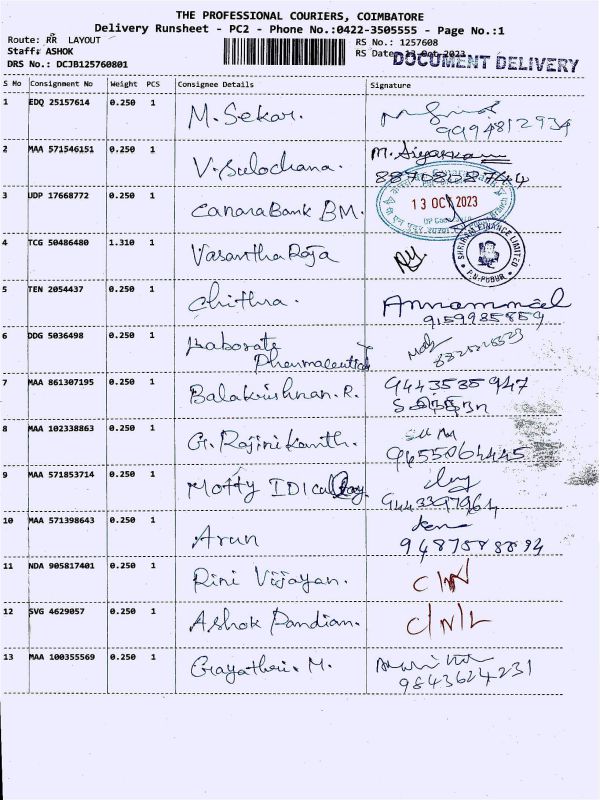 THE PROFESSIONAL COURIERS, COIMBATORE
Delivery Runsheet - PC2 - Phone No.:0422-3505555 - Page No.:1
Route: RR LAYOUT
RS No.: 1257608
Staff: ASHOK
RS Date: 13-Oct-2023
DOCUMENT DELIVERY
DRS No.: DCJB125760801
S No Consignment No Weight PCS Consignee Details Signature
1 EDQ 25157614 0.250 1 M. Sekar.
9994812934
2 MAA 571546151 0.250 1 V. Sulochana. M.
8870808744
3 UDP 17668772 0.250 1 Canara Bank BM. 13 OCT 2023
4 TCG 50486480 1.310 1 Vasantha Roja
SHRIRAM FINANCE LIMITED
P.N.PUDUR
5 TEN 2054437 0.250 1 Chithra. Annammal
9159935859
6 DDG 5036498 0.250 1 Laborate
Pharmaceutical
7 MAA 861307195 0.250 1 Balakrishnan. R. 9443535947
8 MAA 102338863 0.250 1 G. Rajinikanth.
9455064445
9 MAA 571853714 0.250 1 Motty IDI
9443397964
10 MAA 571398643 0.250 1 Arun
9487588894
11 NDA 905817401 0.250 1 Rini Vijayan.
12 SVG 4629057 0.250 1 Ashok Pandian. C/N/L
13 MAA 100355569 0.250 1 Gayathri. M.
9843624231